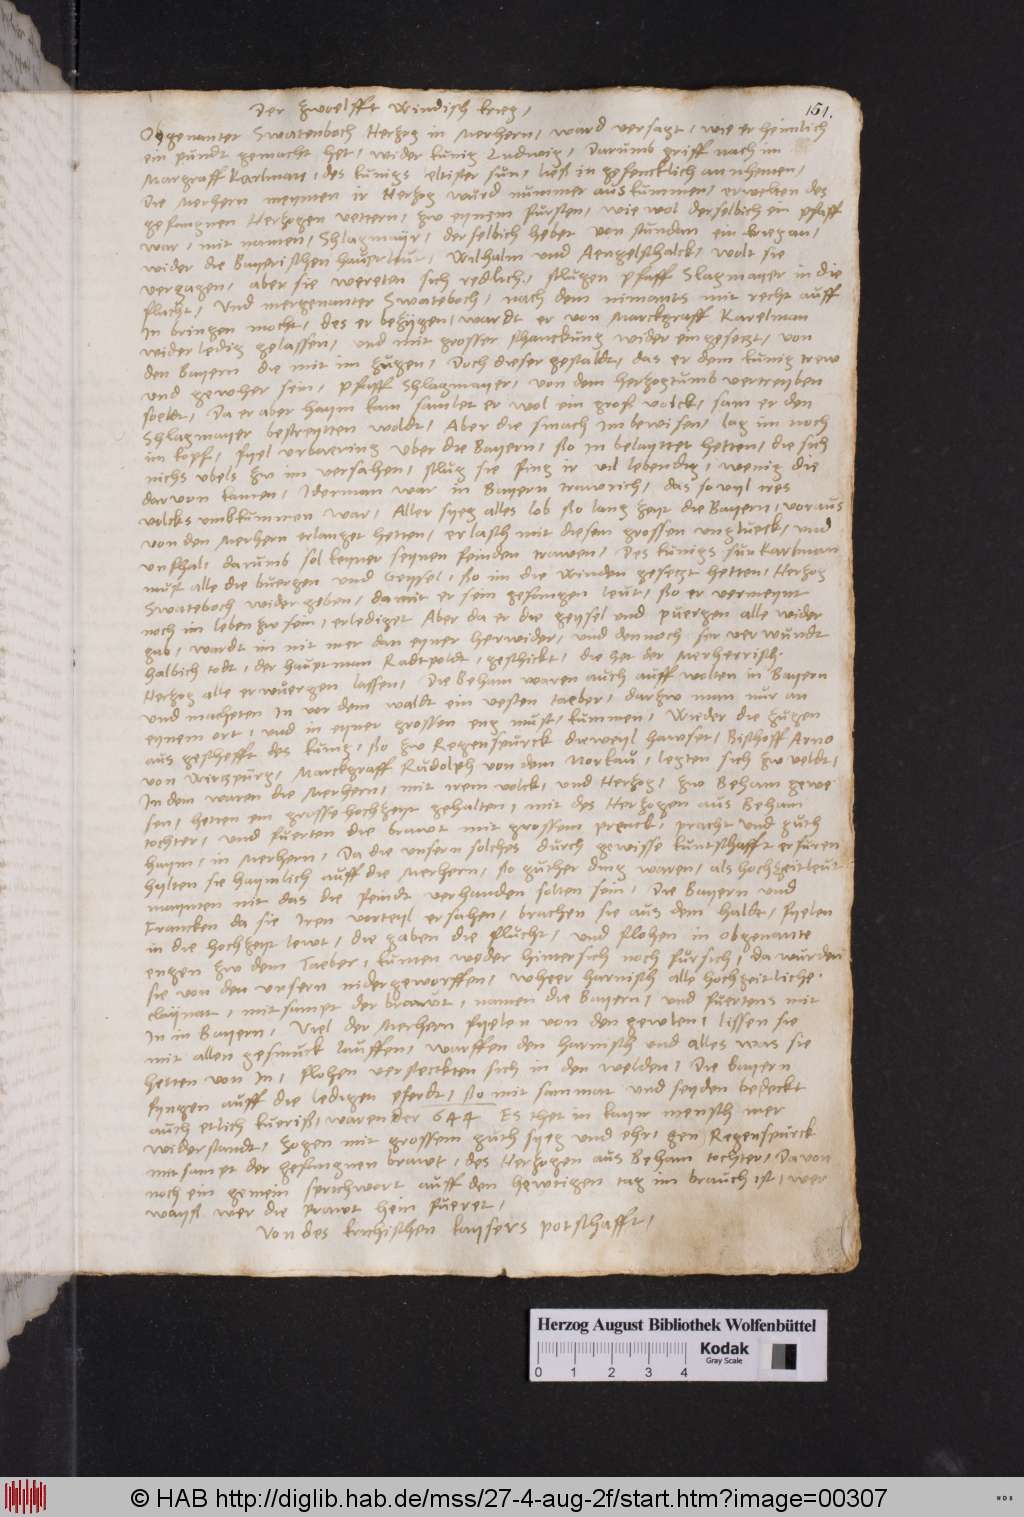 151.
Der zwoelfft Windisch krieg,
Obgenanter Swatenboch Herzog in Merhern, ward versagt, wie er heimlich
ein pundt gemacht het, wider kunig Ludwig, Darumb griff nach im
Margraff Karlman, des kunigs eltister sun, ließ in gefencklich annhemen,
Die Merhern meynten ir Herzog wurd nummer aus kummen, erwelten des
gefangnen Herzogen vettern, zw eynem fursten, wie wol derselbich ein pfaff
war, mit namen, Schlagmayr, derselbich hebet von stundan ein krieg an,
wider die Bayerischen haubtleut, Wilhalm und Aengelschalck, wolt sie
veriagen, aber sie wereten sich redlich, slugen pfaff Slagmayer in die
flucht, Und mergenanter Swateboch, nach dem nimants mit recht auff
In bringen mocht, des er bezygen, wardt er von Marckgraff Karelman
wider ledig gelassen, und mit grosser schanckung wider ein gesetzt, von
den Bayern die mit im zugen, Doch dieser gestaldt, das er dem kunig trew
und gewher sein, pfaff Schlagmayer, von dem herzogtumb vertreyben
soldt, Da er aber haym kam samlet er wol ein groß volck, sam er den
Schlagmayer bestreytten woldt, Aber die smach im bewisen, lag im noch
im kopf, fyel urbaering uber die Bayern, ßo in belayttet hetten, die sich
nichs ubels zw im versahen, slug sie fing ir vil lebendig, wenig die
darvon kamen, Iderman war in Bayern trawrich, das so vyl ires
volcks umbkummen war, Aller syeg alles lob ßo lang zeyt die Bayern, voraus
von den Merhern erlanget hetten, erlasch mit diesem grossen unglueck, und
unfhal, darumb sol keyner seynen feinden trawen, Des kunigs sun Karlman
must alle die buergen und Geysel, ßo im die Winden gesetzt hetten, Herzog
Swateboch wider geben, damit er sein gefangen leut, ßo er vermeynt
noch im leben zw sein, erlediget Aber da er die geysel und puergen alle wider
gab, wardt im nit mer dan eyner herwider, und dennoch ser verwundt
halbich todt, der hauptman Radtpoldt, geschickt, die het der Merherrisch
Herzog alle erwuergen lassen, Die Beham waren auch auff wolten in Bayern
und macheten In vor dem waldt ein vesten taeber, darzw man nur an
eynem ort, und in eyner grossen eng must, kummen, Wieder die zugen
aus geschefft des kunig, ßo zw Regenspurck dieweyl hawset, Bischoff Arno
von Wirtzpurg, Marckgraff Rudolph von dem Norkau, legten sich zw veldt,
In dem waren die Merhern, mit irem volck, und Herzog, zw Beham gewe
sen, hetten ein grosse hochzeyt gehalten, mit des Herzogen aus Beham
tochter, und fuerten die brawt mit grossem preuck, pracht und guth
haym, in Merhern, Da die unsern solches durch gewisse kuntschafft erfuren
hylten sie haymlich auff die Merhern, ßo gutther ding waren, als hochzeitleut
maynten nit das die feindt verhanden solten sein, Die Bayern und
Francken da sie Iren vorteyl ersahen, brachen sie aus dem haldt, fyelen
in die hochzeyt lewt, die gaben die flucht, und flohen in obgenante
engen zw dem Taeber, kunten weder hintersich noch fursich, da wurden
sie von den unsern nidergeworffen, wheer harnisch alle hochzeitliche
claynat, mit sampt der brawt, namen die Bayern, und fuertens mit
In in Bayern, Viel der Merhern fyelen von den gewlen, lissen sie
mit allen gesmuck lauffen, warffen den harnisch und alles was sie
hetten von In, flohen versteckten sich in den welden, Die Bayern
fyngen auff die ledigen pferdt, ßo mit sammat und seyden bedeckt
auch etlich kueriß, waren der 644 Es thet in kayn mensch mer
widerstandt, zogen mit grossem guth syeg und ehr, gen Regenspurck
mit sampt der gefangnen brawt, des Herzogen aus Beham tochter, Davon
noch ein gemein sprichwort auff den hewtigen tag im brauch ist, wer
wayß wer die prawt heim fueret,
Von des krichischen kaysers potschafft,
Herzog August Bibliothek Wolfenbüttel
Kodak
Gray Scale
0 1 2 3 4
© HAB http://diglib.hab.de/mss/27-4-aug-2f/start.htm?image=00307